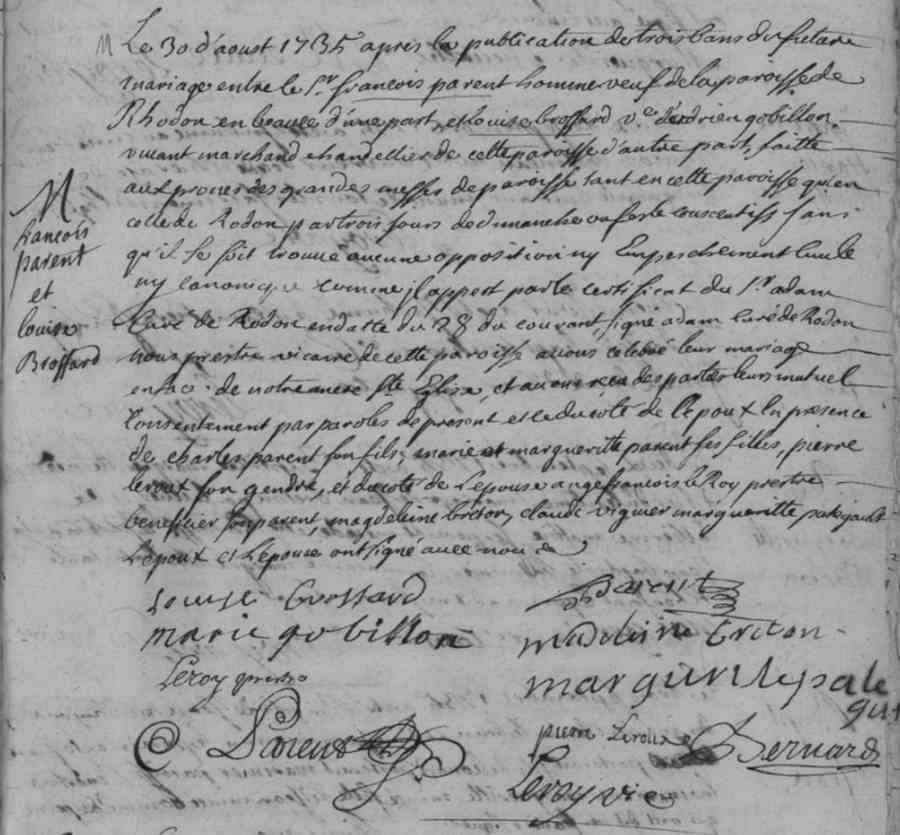 M
francois
parent
et
louise
Brossard
Le 30 d'aoust 1735 apres la publication de trois bans du futur
mariage entre le Sr. francois parent homme veuf de la paroisse de
Rhodon en beauce d'une part, et louise brossard ve. d'adrien gobillon
vivant marchand chandellier de cette paroisse d'autre part, faitte
aux prones des grandes messes de paroisse tant en cette paroisse qu'en
celle de Rodon par trois jours de dimanche ou feste consecutifs sans
qu'il se soit trouvé aucune opposition ny Empeschement civile
ny canonique comme jl appert par le certificat du Sr. adam
Curé de Rodon en datte du 28 du courant, signé adam curé de Rodon
nous prestre vicaire de cette paroisse avons celebré leur mariage
en face de notre mere Ste Eglise, et avons receu des parties leurs mutuel
Consentement par paroles de present et ce du coté de l'epoux En presence
de charles parent son fils, marie et margueritte parent ses filles, pierre
leroux son gendre, et du coté de L'epouse ange francois le Roy prestre
beneficier son parent, magdeleine breton, claude viguier margueritte
L'epoux et L'epouse ont signé avec nous
Louise Brossard
Parent
marie gobillon
madeleine breton
Leroy
margueritte pale
C Parent
pierre Leroux
Bernard
Leroy vic